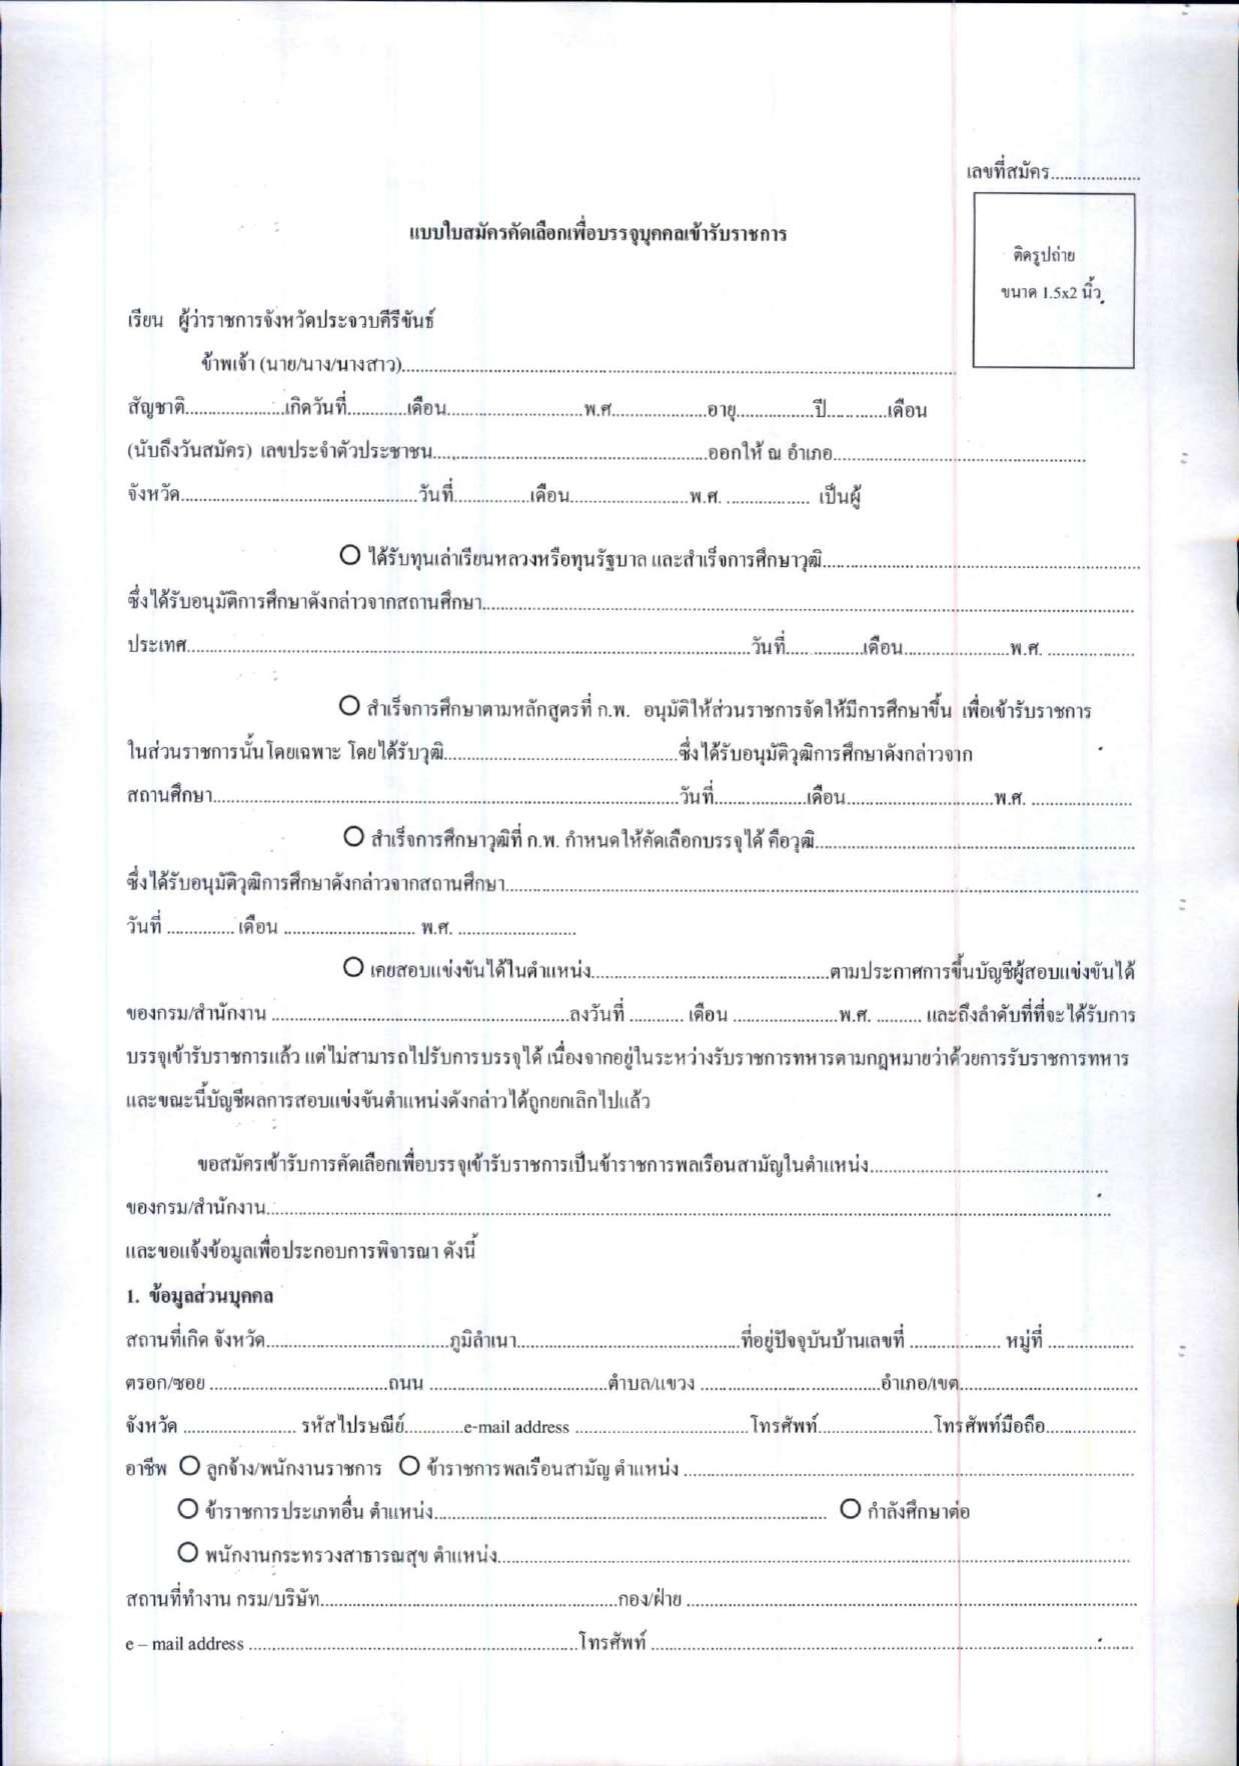 เลขที่สมัคร....................
แบบใบสมัครคัดเลือกเพื่อบรรจุบุคคลเข้ารับราชการ
ติดรูปถ่าย
ขนาด 1.5x2 นิ้ว
เรียน ผู้ว่าราชการจังหวัดประจวบคีรีขันธ์
ข้าพเจ้า (นาย/นาง/นางสาว)....................
สัญชาติ....................เกิดวันที่.............เดือน..............................พ.ศ.....................อายุ.................ปี.............เดือน
(นับถึงวันสมัคร) เลขประจำตัวประชาชน....................ออกให้ ณ อำเภอ....................
จังหวัด....................วันที่.................เดือน....................พ.ศ. ................... เป็นผู้
○ ได้รับทุนเล่าเรียนหลวงหรือทุนรัฐบาล และสำเร็จการศึกษาวุฒิ....................
ซึ่งได้รับอนุมัติการศึกษาดังกล่าวจากสถานศึกษา....................
ประเทศ....................วันที่.................เดือน....................พ.ศ. ....................
○ สำเร็จการศึกษาตามหลักสูตรที่ ก.พ. อนุมัติให้ส่วนราชการจัดให้มีการศึกษาขึ้น เพื่อเข้ารับราชการ
ในส่วนราชการนั้นโดยเฉพาะ โดยได้รับวุฒิ....................ซึ่งได้รับอนุมัติวุฒิการศึกษาดังกล่าวจาก
สถานศึกษา....................วันที่....................เดือน....................พ.ศ. ....................
○ สำเร็จการศึกษาวุฒิที่ ก.พ. กำหนดให้คัดเลือกบรรจุได้ คือวุฒิ....................
ซึ่งได้รับอนุมัติวุฒิการศึกษาดังกล่าวจากสถานศึกษา....................
วันที่ ............... เดือน .................... พ.ศ. ....................
○ เคยสอบแข่งขันได้ในตำแหน่ง....................ตามประกาศการขึ้นบัญชีผู้สอบแข่งขันได้
ของกรม/สำนักงาน ....................ลงวันที่ ............ เดือน ....................พ.ศ. .......... และถึงลำดับที่ที่จะได้รับการ
บรรจุเข้ารับราชการแล้ว แต่ไม่สามารถไปรับการบรรจุได้ เนื่องจากอยู่ในระหว่างรับราชการทหารตามกฎหมายว่าด้วยการรับราชการทหาร
และขณะนี้บัญชีผลการสอบแข่งขันตำแหน่งดังกล่าวได้ถูกยกเลิกไปแล้ว
ขอสมัครเข้ารับการคัดเลือกเพื่อบรรจุเข้ารับราชการเป็นข้าราชการพลเรือนสามัญในตำแหน่ง....................
ของกรม/สำนักงาน....................
และขอแจ้งข้อมูลเพื่อประกอบการพิจารณา ดังนี้
1. ข้อมูลส่วนบุคคล
สถานที่เกิด จังหวัด....................ภูมิลำเนา....................ที่อยู่ปัจจุบันบ้านเลขที่ .................... หมู่ที่ ...................
ตรอก/ซอย ....................ถนน ....................ตำบล/แขวง ....................อำเภอ/เขต....................
จังหวัด .................... รหัสไปรษณีย์.............e-mail address ....................โทรศัพท์....................โทรศัพท์มือถือ....................
อาชีพ ○ ลูกจ้าง/พนักงานราชการ ○ ข้าราชการพลเรือนสามัญ ตำแหน่ง ....................
○ ข้าราชการประเภทอื่น ตำแหน่ง.................... ○ กำลังศึกษาต่อ
○ พนักงานกระทรวงสาธารณสุข ตำแหน่ง....................
สถานที่ทำงาน กรม/บริษัท....................กอง/ฝ่าย ....................
e – mail address ....................โทรศัพท์ ....................